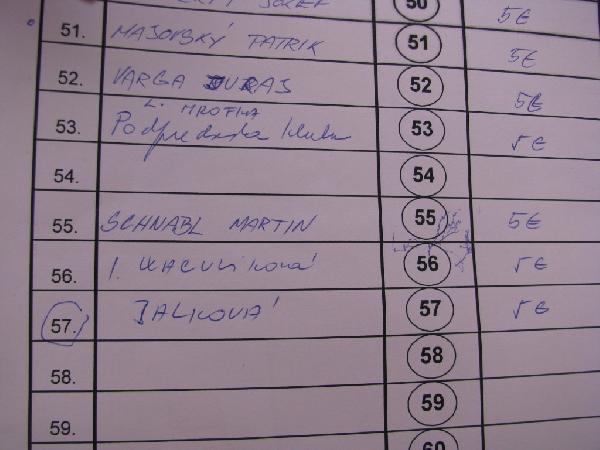 JOZEF 50 5€
51. MAJOVSKÝ PATRIK 51 5€
52. VARGA JURAJ 52 5€
L. HROTKA
53. Podpredseda klubu 53 5€
54. 54
55. SCHNABL MARTIN 55 5€
56. I. 56 5€
57. JALKOVÁ 57 5€
58. 58
59. 59
60